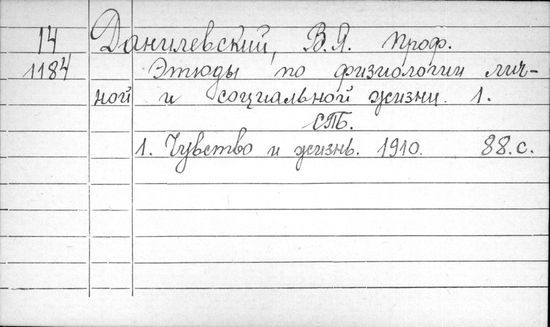 14 Данилевский, В.Я. проф.
1184 Этюды по физиологии лич-
ной и социальной жизни. 1.
СПБ.
1. Чувство и жизнь. 1910. 88.с.